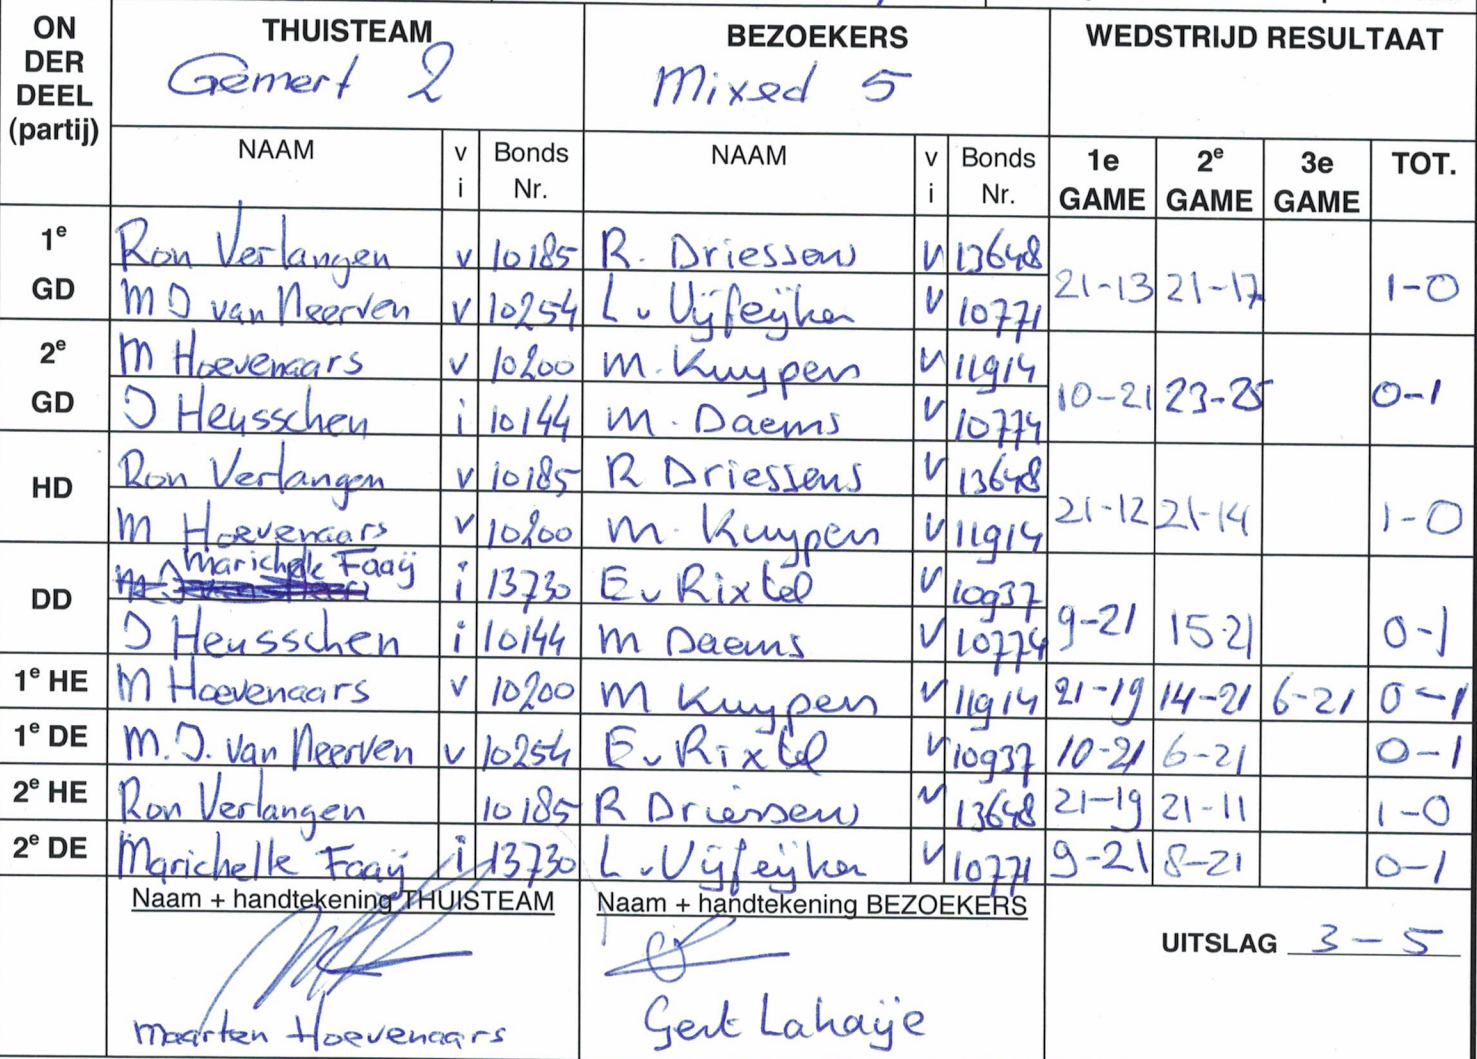 ON DER DEEL (partij) THUISTEAM BEZOEKERS WEDSTRIJD RESULTAAT
Gemert 2 Mixed 5
NAAM v i Bonds Nr. NAAM v i Bonds Nr. 1e GAME 2e GAME 3e GAME TOT.
1e GD Ron Verlangen v 10185 R. Driessens v 13648 21-13 21-17 1-0
M J van Neerven v 10254 L v Vijfeijken v 10771
2e GD M Hoevenaars v 10200 M. Kuypers v 11914 10-21 23-25 0-1
J Heusschen i 10144 M. Daems v 10774
HD Ron Verlangen v 10185 R Driessens v 13648 21-12 21-14 1-0
M Hoevenaars v 10200 M. Kuypers v 11914
DD Marichelle Faaij i 13730 E v Rixtel v 10937 9-21 15-21 0-1
J Heusschen i 10144 M Daems v 10774
1e HE M Hoevenaars v 10200 M Kuypers v 11914 21-19 14-21 6-21 0-1
1e DE M. J. van Neerven v 10254 E v Rixtel v 10937 10-21 6-21 0-1
2e HE Ron Verlangen 10185 R Driessens v 13648 21-19 21-11 1-0
2e DE Marichelle Faaij i 13730 L v Vijfeijken v 10771 9-21 8-21 0-1
Naam + handtekening THUISTEAM Naam + handtekening BEZOEKERS
UITSLAG 3-5
Maarten Hoevenaars Gert Lahaije